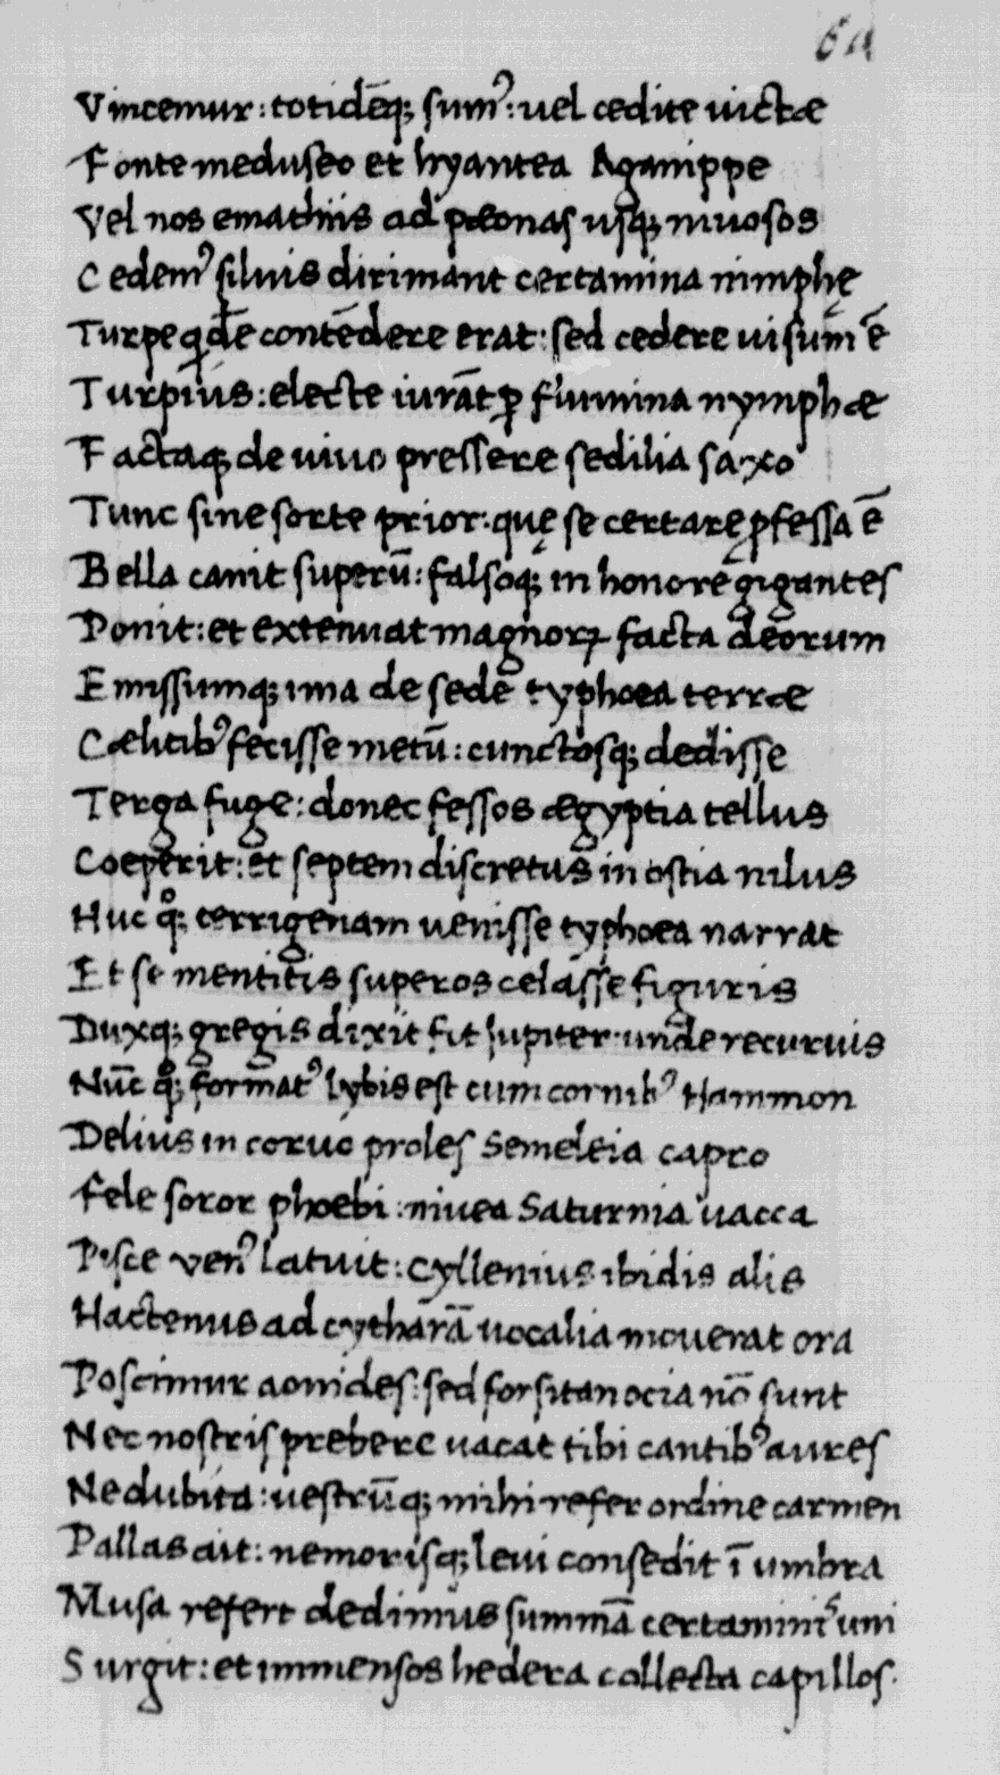 64
Vincemur: totidēq; sumꝰ: uel cedite uictæ
Fonte meduseo et hyantea Aganippe
Vel nos emathiis ad pæonas usq; niuosos
Cedemꝰ siluis dirimant certamina nimphę
Turpe qdē contēdere erat: sed cedere uisum ē
Turpius: electe iurāt ꝑ flumina nymphæ
Factaq; de uiuo pressere sedilia saxo
Tunc sine sorte prior: quę se certare ꝓfessa ē
Bella canit superū: falsoq; in honore gigantes
Ponit: et extenuat magnorꝝ facta deorum
Emissumq; ima de sede typhoea terræ
Cælitibꝰ fecisse metū: cunctosq; dedisse
Terga fuge: donec fessos ægyptia tellus
Coeperit: et septem discretus in ostia nilus
Huc qͦ; terrigenam uenisse typhoea narrat
Et se mentitis superos celasse figuris
Duxq; gregis dixit fit Iupiter: unde recuruis
Nūc qͦ; formatꝰ lybis est cum cornibꝰ Hammon
Delius in coruo proles Semeleia capro
Fele soror phoebi: niuea Saturnia uacca
Pisce venꝰ latuit: cyllenius ibidis alis
Hactenus ad cytharā uocalia mouerat ora
Poscimur aonides: sed forsitan ocia nō sunt
Nec nostris prebere uacat tibi cantibꝰ aures
Ne dubita: uestrūq; mihi refer ordine carmen
Pallas ait: nemorisq; leui consedit ī umbra
Musa refert dedimus summā certaminiˢ uni
Surgit: et immensos hedera collecta capillos.